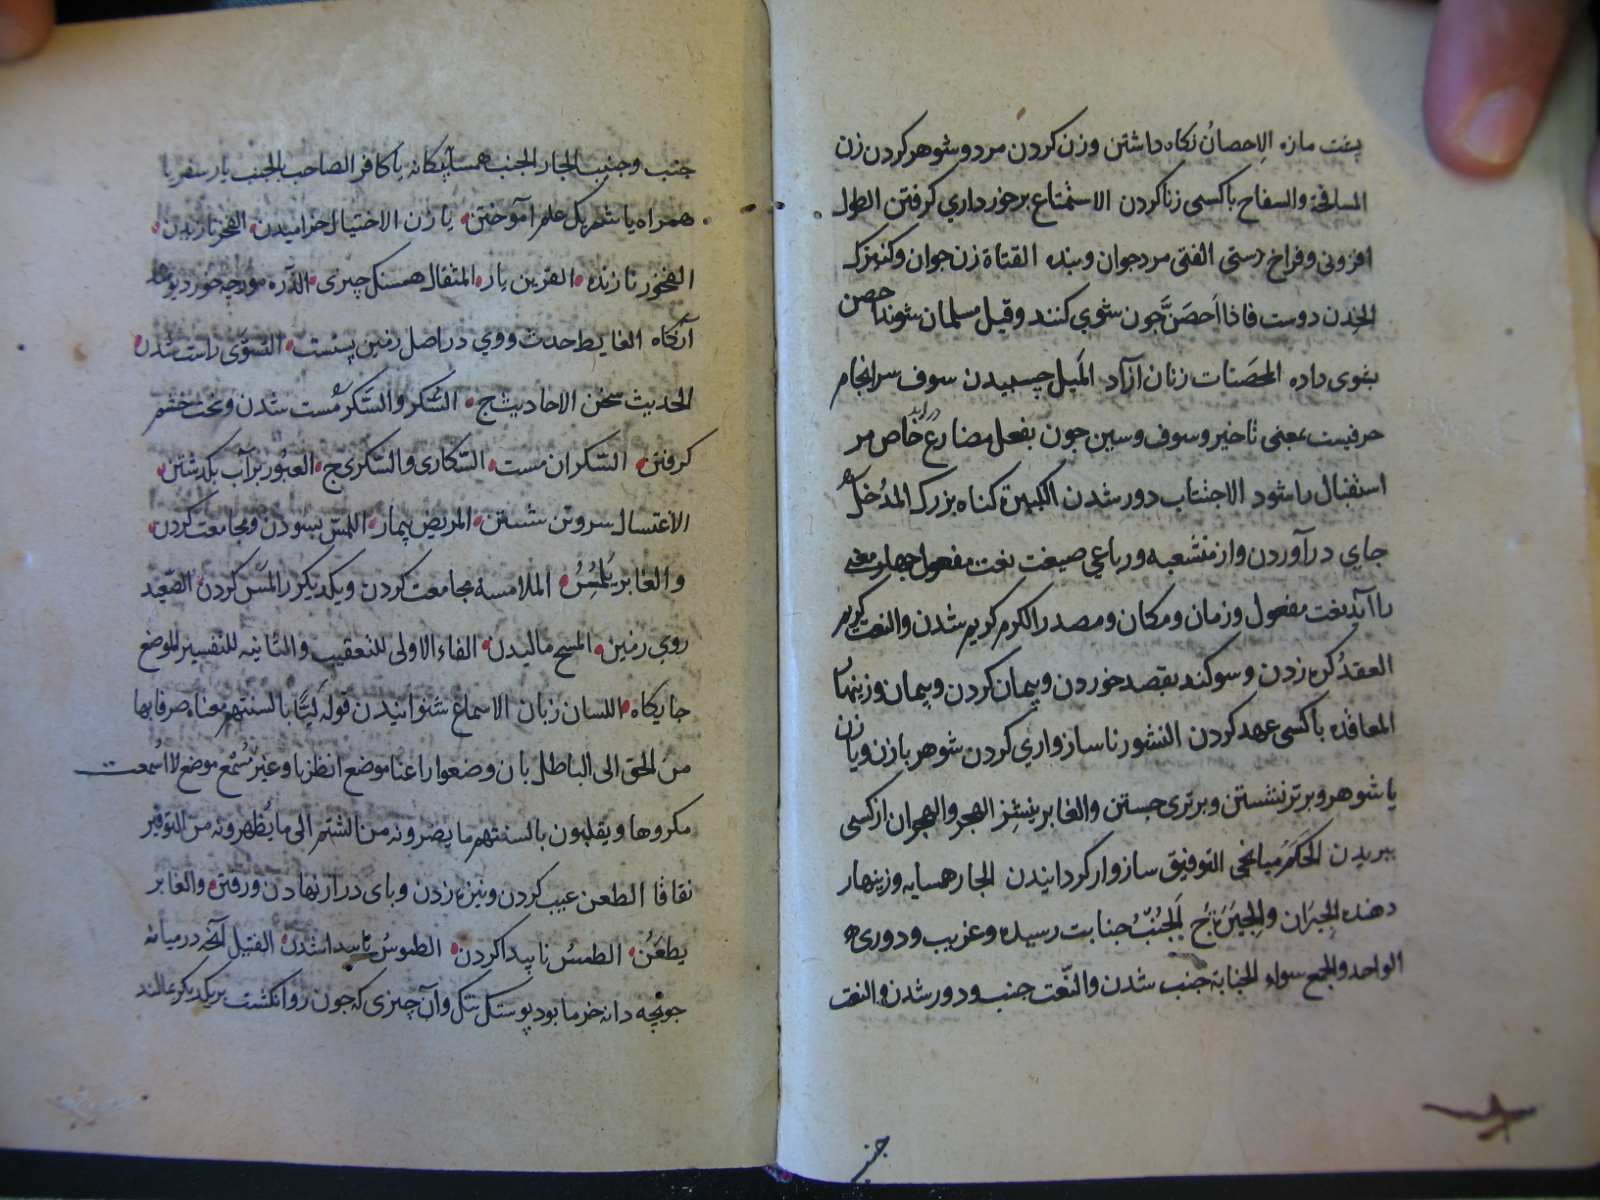 پشت مازه الاِحصانُ نكاه داشتن وزن كردن مرد و شوهر كردن زن
المسافحة والسفاح باكسى زنا كردن الاستمتاع برخورداري كرفتن الطول
افزونى وفراخ دستي الفتى مرد جوان وبنده الفتاة زن جوان وكنيزك
الخِدن دوست فاذا اَحصَنَّ چون شوي كنند وقيل مسلمان شوند احصن
بشوى داده المحصَنات زنان آزاد المَيل چسبيدن سوف سرانجام
حرفيست بمعنى تاخير وسوف وسين چون بفعل مضارع در آيد خاص مر
استقبال را شود الاجتناب دور شدن الكبيرة كناه بزرك المدُخل
جاي درآوردن واز منشَعبه ورباعي صيغت نعت مفعول چهار معنى
را آيد نعت مفعول وزمان ومكان ومصدر الكرم كريم شدن والنعت كريم
العقد كره زدن وسوكند بقصد خوردن وپيمان كردن وپيمان وزينهار
المعاقده باكسى عهد كردن النشوز ناسازواري كردن شوهر بازن ويا زن
با شوهر وبرتر نشستن وبرترى جستن والغابر ينشِز الهجر والهجران ازكسى
ببريدن الحَكَمُ ميانجى التوفيق سازوار كردانيدن الجار همسايه وزينهار
دهنده الجِيَران والجِيَرَة ج اَلجُنُبُ جنابت رسيده وغريب ودورى
الواحد والجمع سواء الجنابة جنب شدن والنّعت جنب ودور شدن والنعت
جنب
جنب وجنيب الجار الجنب همسايه بيكانه يا كافر الصاحب بالجنب يار سفر يا
همراه يا شريك علم آموختن يا زن الاختيال خراميدن الفخر نازيدن
الفخور نازنده القرين يار المثقال همسنك چيزى الذَّره مورچه خورد
آركاه الغايط حدث ووي در اصل زمين پستست التسوّى راست شدن
الحديث سخن الاحاديث ج السُّكر والسَّكر مُست شدن وسخت خشم
كرفتن السَّكران مست السَّكارى والسَّكرى ج العبُور برآب بكذشتن
الاغتسال سروتن شستن المريض بيمار اللمسُ بسودن ومجامعت كردن
والغابر يَلمِسُ الملامسة مجامعت كردن ويكديكر را لمَس كردن الصَّعِيد
روي زمين المسح ماليدن الفاء الاولى للتعقيب والثانيه للتفسير الموضع
جايكاه اللسان زبان الاسماع شنوانيدن قوله لَيًّا بالسنتهم معناه صرفا بها
من الحق الى الباطل بان وضعوا راعنا موضع انظرنا وغير مُسْمَع موضع لا اُسْمِعت
مكروها ويقلبون بالسنتهم ما يضمرونه من الشتم الى ما يُظهرونه من التوقير
نفاقا الطعن عيب كردن ونيزه زدن وپاى در راه نهادن ورفتن والغابر
يطعَنُ الطمسُ ناپيدا كردن الطموسُ ناپيدا شدن الفتيل آنچه درميانه
جوٸچه دانه خرما بود پوستك تنك وآن چيزى كه چون دو انكشت بريكديكر مالند